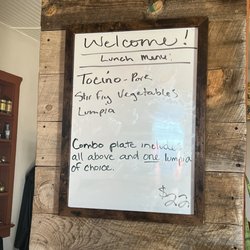 Welcome!
Lunch Menu:
Tocino-Pork
Stir fry Vegetables
Lumpia
Combo plate include
all above and one lumpia
of choice.
$22